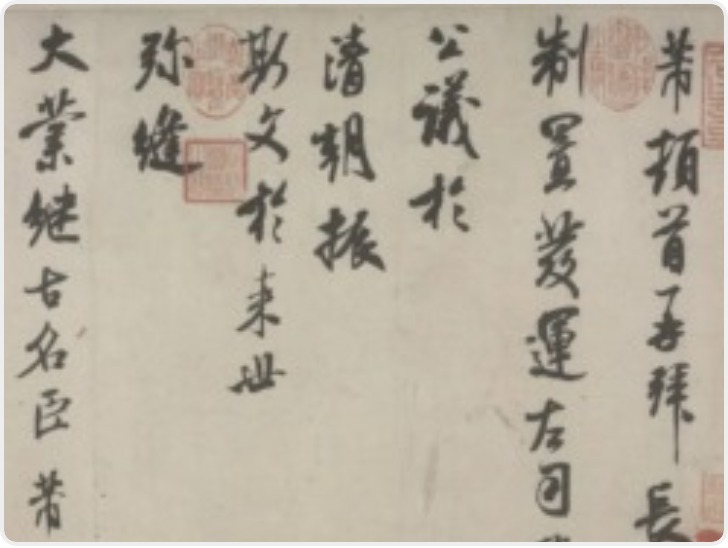 芾頓首再拜長
制置發運左司
公議於
清朝振
斯文於来世
弥縫
大業継古名臣芾